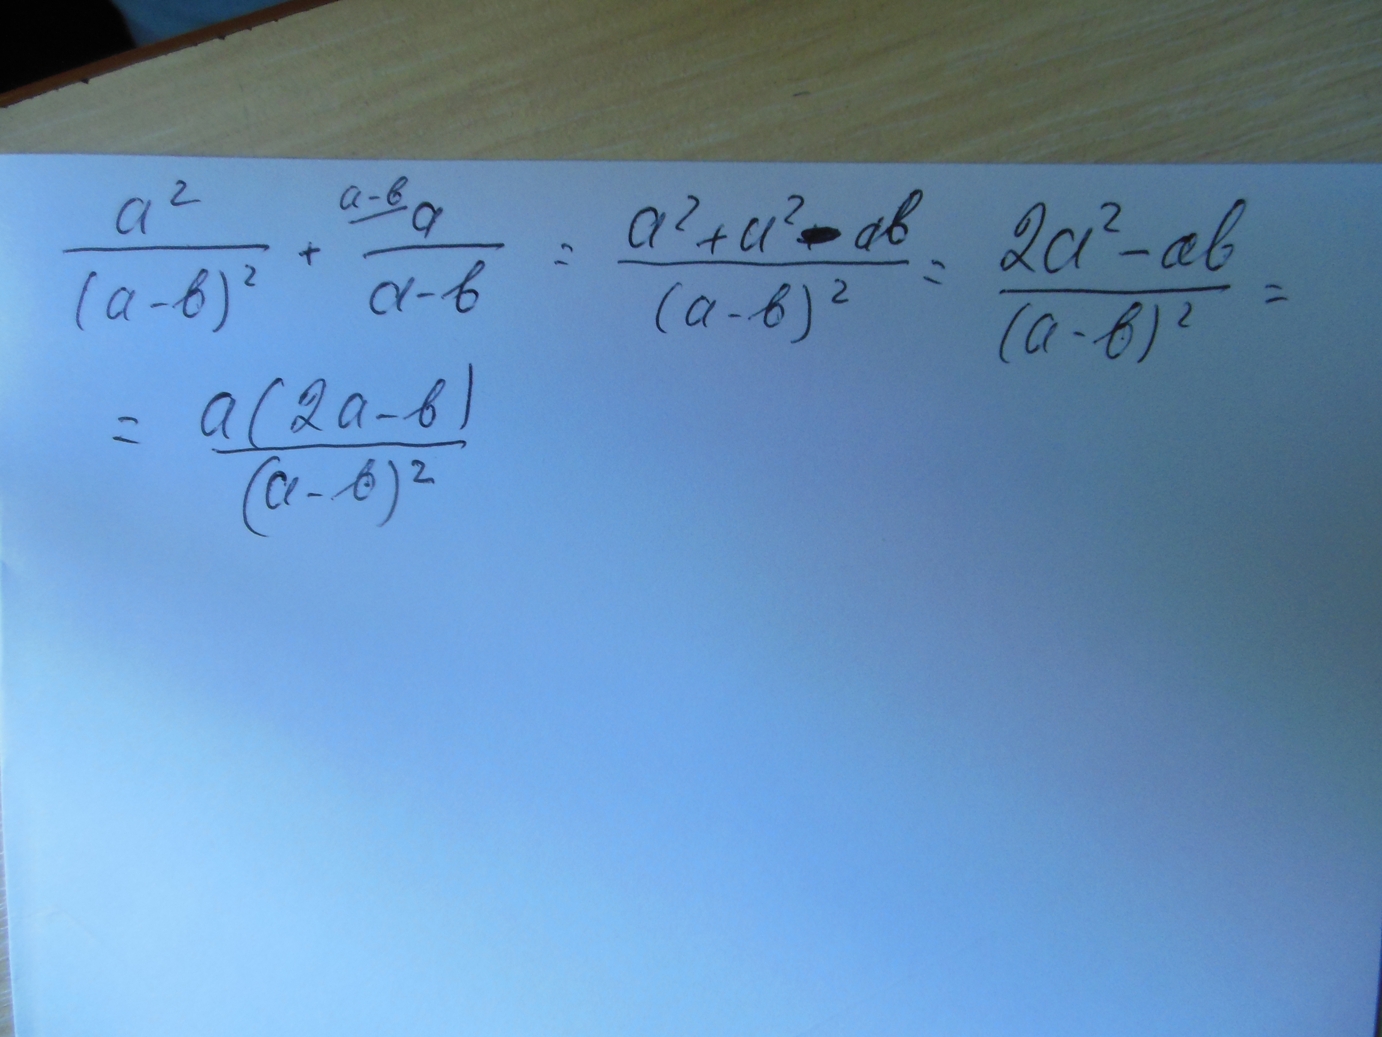 a²/(a-b)² + ᵃ⁻ᵇ a/(a-b) = (a²+a²-ab)/(a-b)² = (2a²-ab)/(a-b)² =
= a(2a-b)/(a-b)²